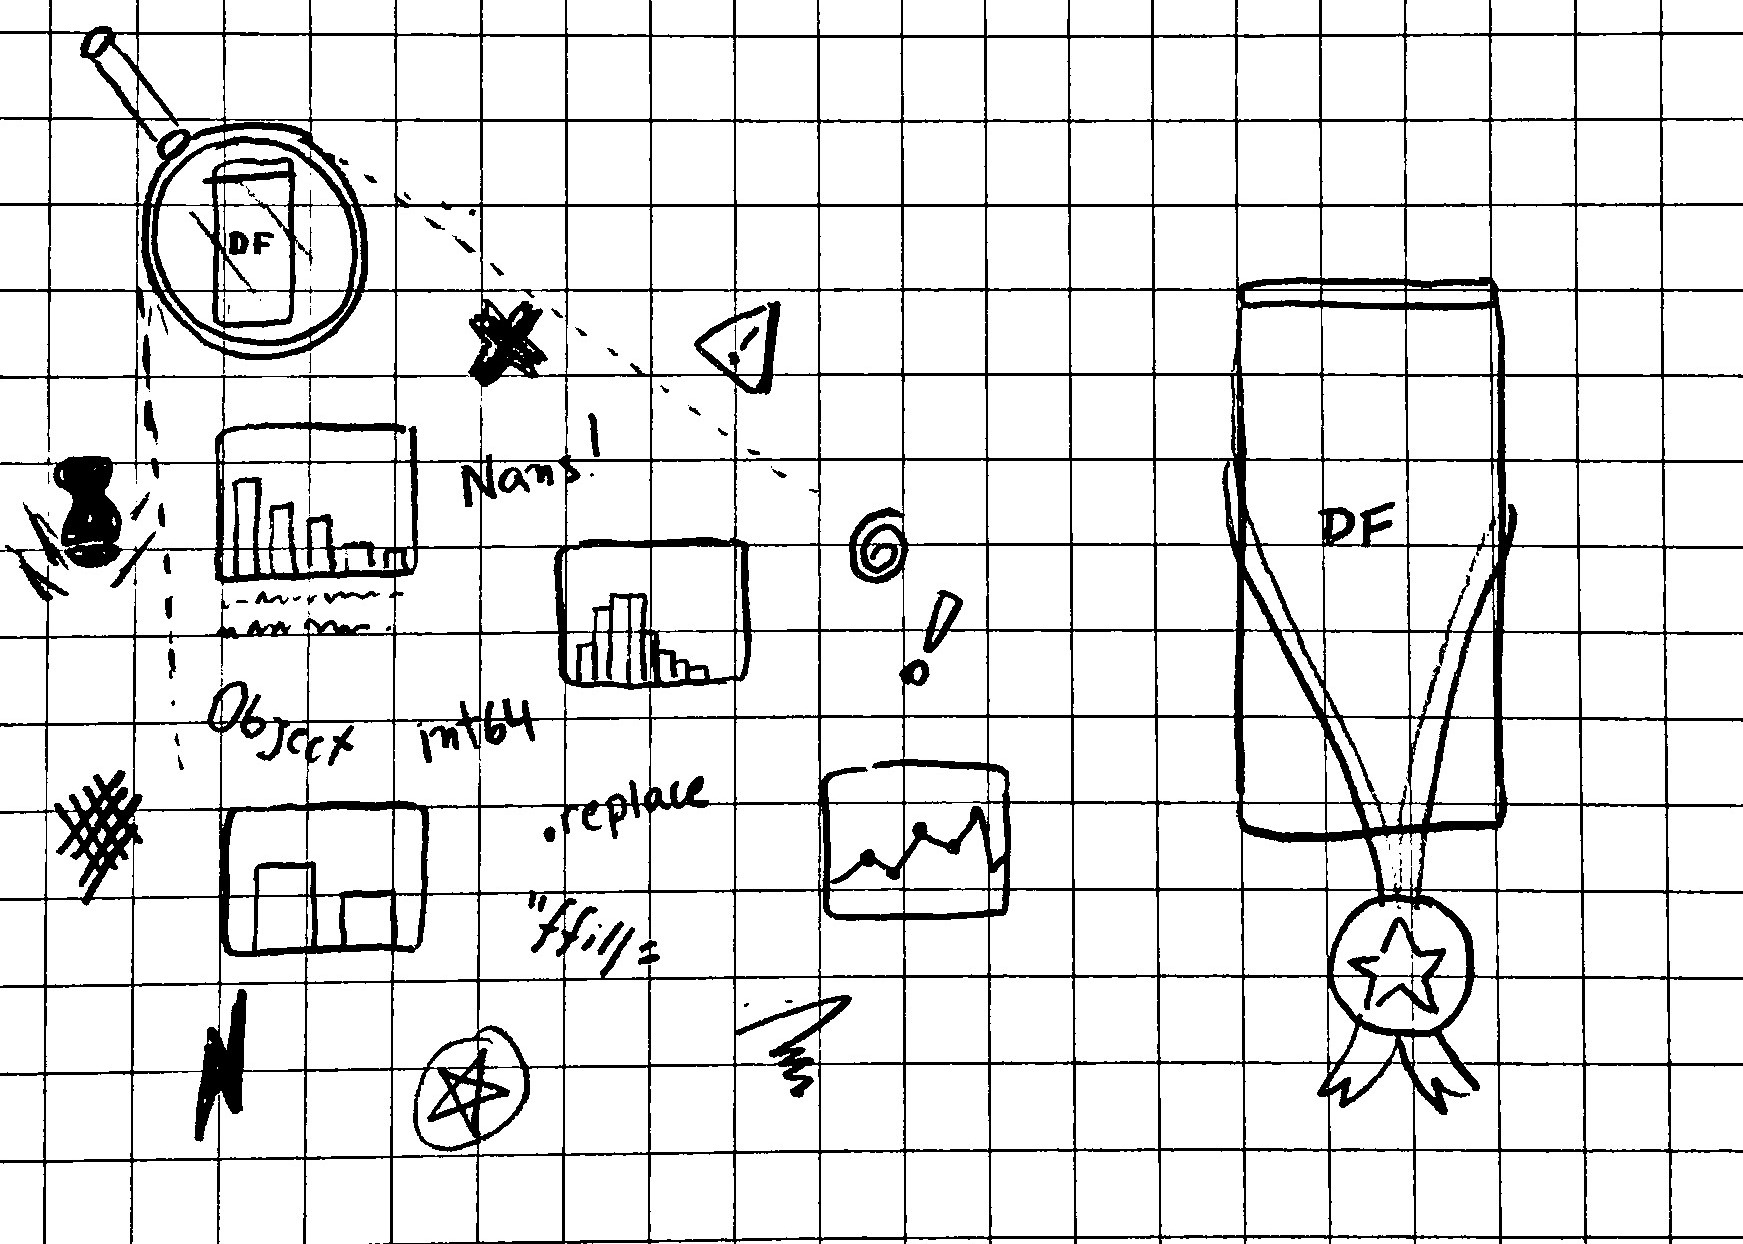 DF
Nans!
Object
int64
.replace
"ffill=
DF